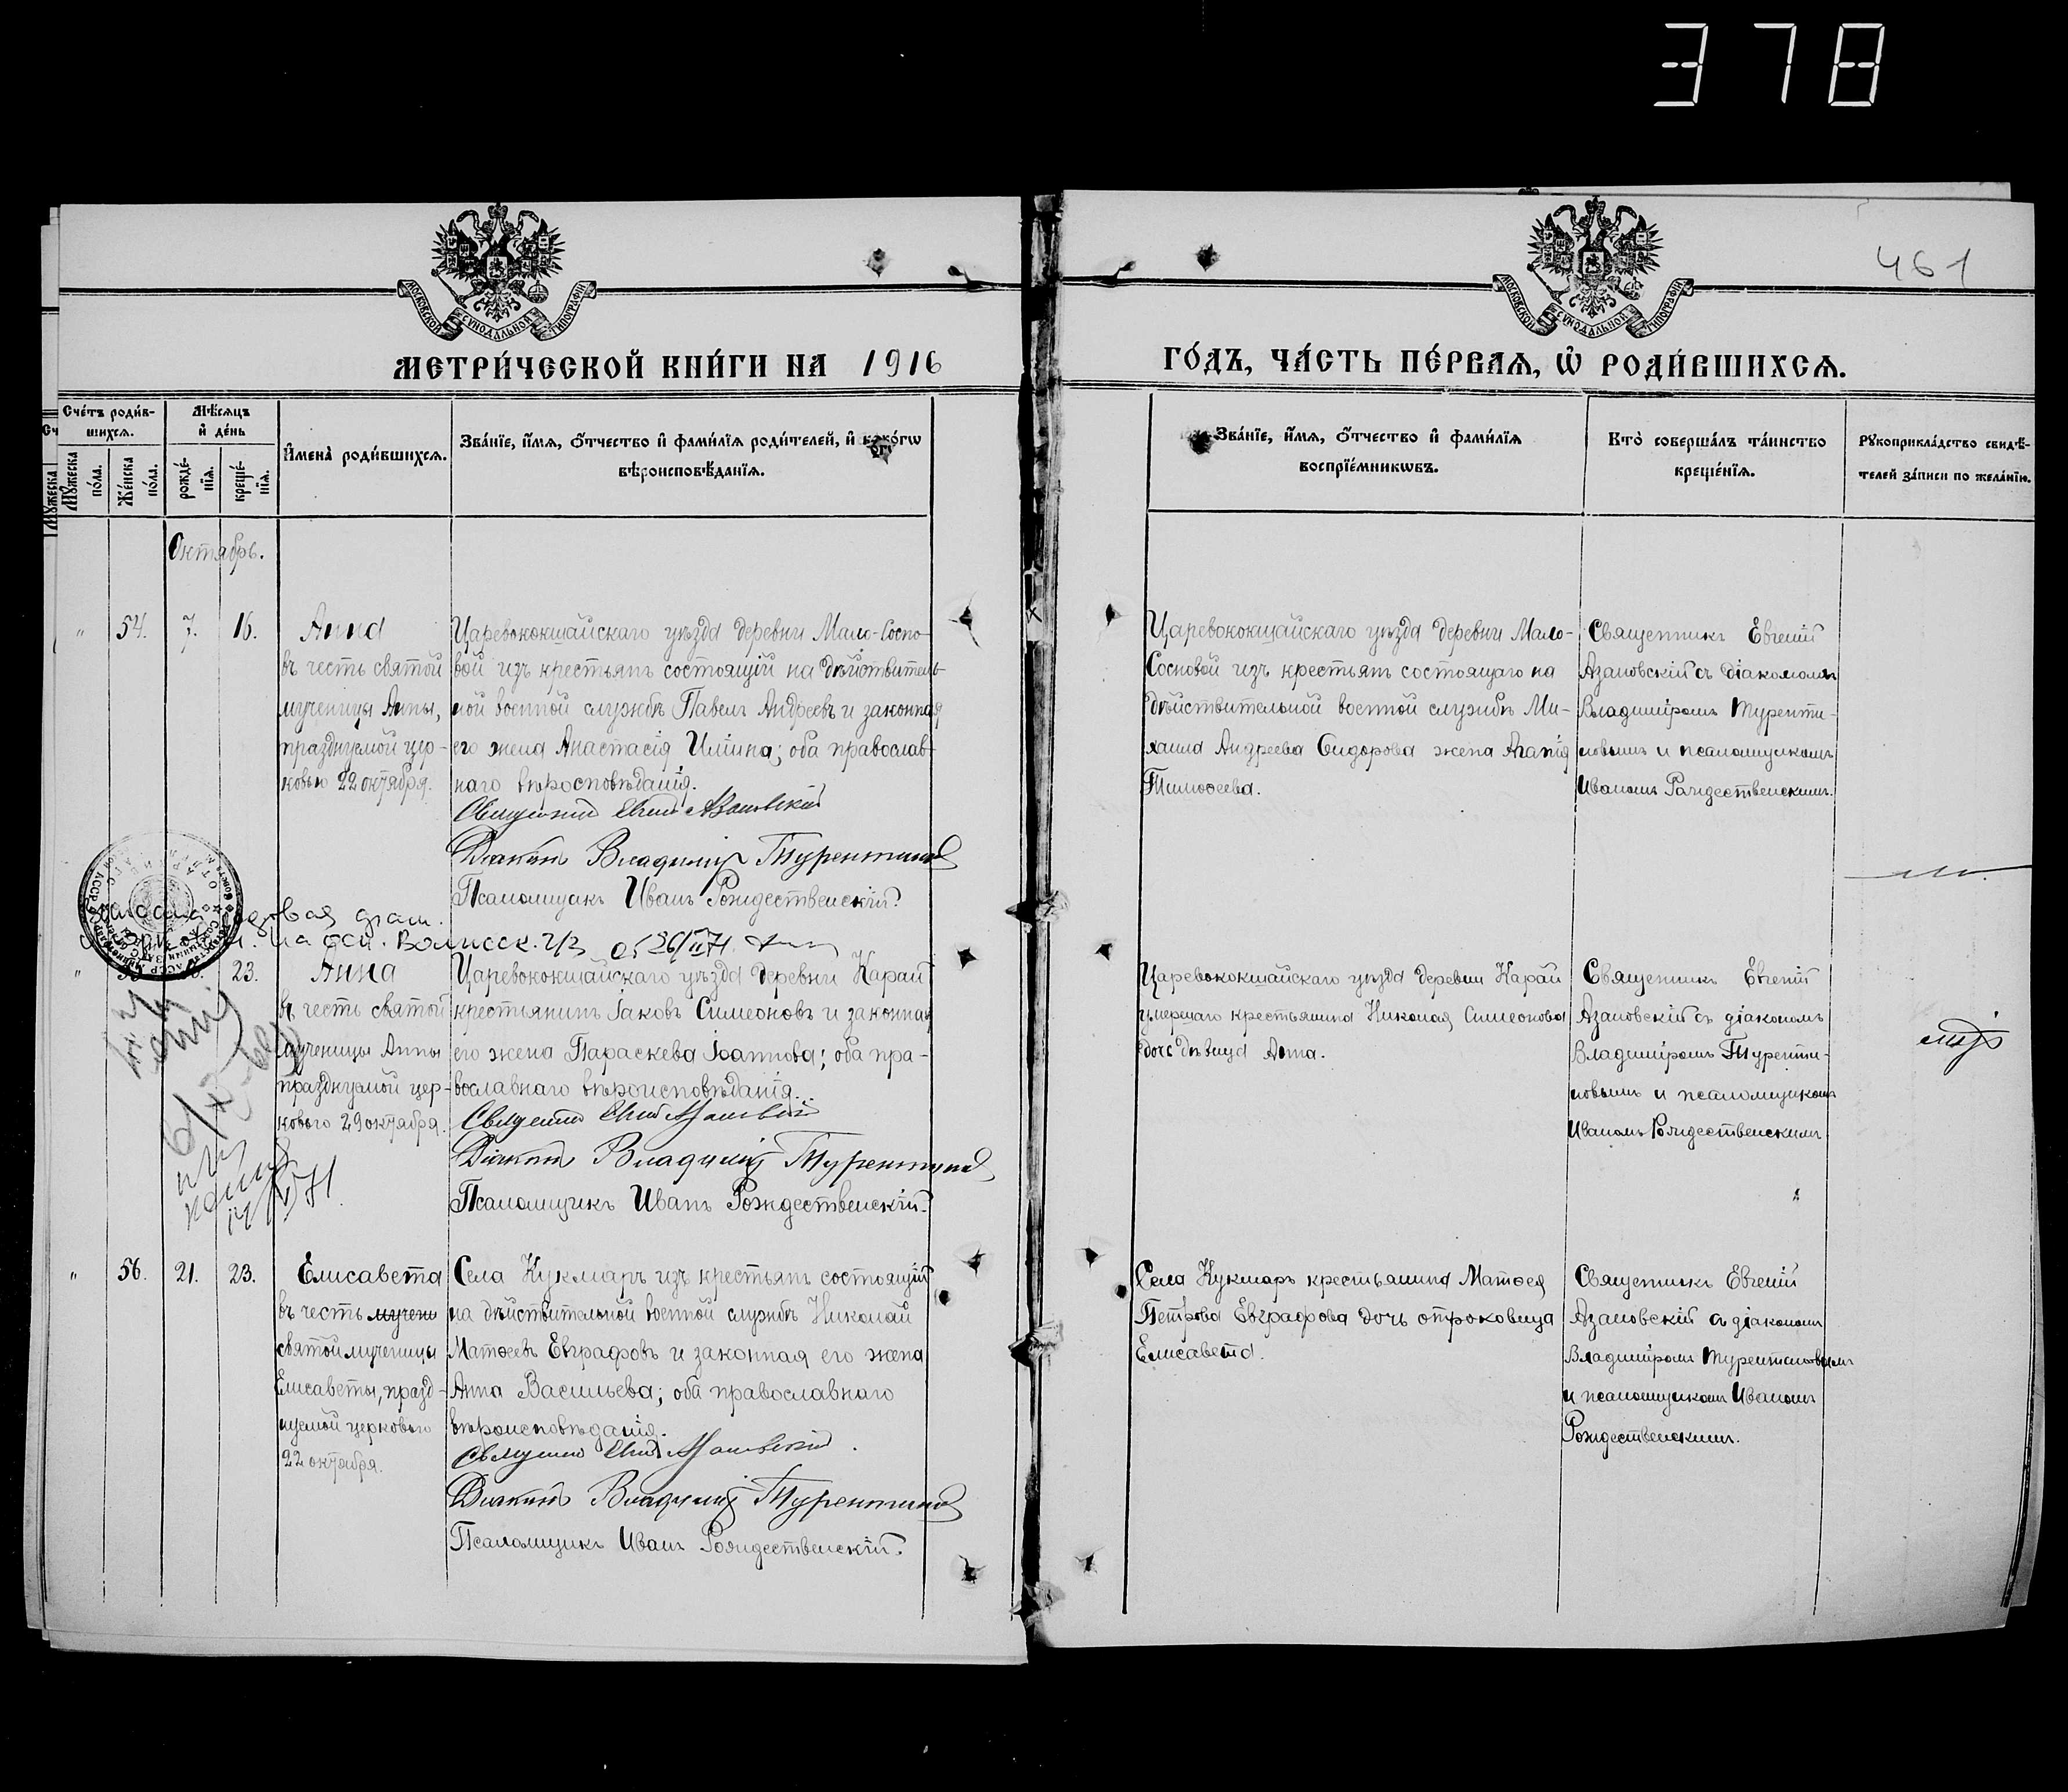 378
461
МОСКОВСКОЙ СѴНОДАЛЬНОЙ ТИПОГРАФІИ
МОСКОВСКОЙ СѴНОДАЛЬНОЙ ТИПОГРАФІИ
МЕТРИ́ЧЕСКОЙ КНИ́ГИ НА 1916
ГО́ДЪ, ЧА́СТЬ ПЕ́РВАѦ, Ѡ҆ РОДИ́ВШИХСѦ.
Сче́тъ роди́в-
шихсѧ.
Мѣ́сѧцъ
и҆ де́нь
Мꙋ́жеска
по́ла.
Же́нска
по́ла.
рожде́-
нїѧ.
креще́-
нїѧ.
И҆мена̀ роди́вшихсѧ.
Зва́нїе, и҆́мѧ, ѻ҆́тчество и҆ фами́лїѧ роди́телей, и҆ како́гѡ
вѣроисповѣ́данїѧ.
Зва́нїе, и҆́мѧ, ѻ҆́тчество и҆ фами́лїѧ
воспрїе́мникѡвъ.
Кто̀ соверша́лъ та́инство
креще́нїѧ.
Рꙋкоприкла́дство свидѣ́-
телей за́писи по жела́нїю.
Октябрь.
" 54. 7. 16.
Анна
въ честь святой
мученицы Анны,
празднуемой цер-
ковью 22 октября.
Царевококшайскаго уѣзда деревни Мало-Сосно-
вой изъ крестьянъ состоящій на дѣйствитель-
ной военной службѣ Павелъ Андреевъ и законная
его жена Анастасія Ильина; оба православ-
наго вѣроисповѣданія.
Священникъ Евгеній Азановскій
Діаконъ Владиміръ Турентиновъ
Псаломщикъ Иванъ Рождественскій.
Царевококшайскаго уѣзда деревни Мало-
Сосновой изъ крестьянъ состоящаго на
дѣйствительной военной службѣ Ми-
хаила Андреева Сидорова жена Агапія
Тимоѳеева.
Священникъ Евгеній
Азановскій съ діакономъ
Владиміромъ Туренти-
новымъ и псаломщикомъ
Иваномъ Рождественскимъ.
" 23.
Анна
въ честь святой
мученицы Анны
празднуемой цер-
ковью 29 октября.
Царевококшайскаго уѣзда деревни Карай
крестьянинъ Іаковъ Симеоновъ и законная
его жена Параскева Іоаннова; оба пра-
вославнаго вѣроисповѣданія.
Священникъ Евгеній Азановскій
Діаконъ Владиміръ Турентиновъ
Псаломщикъ Иванъ Рождественскій.
Царевококшайскаго уѣзда деревни Карай
умершаго крестьянина Николая Симеонова
дочь дѣвица Анна.
Священникъ Евгеній
Азановскій съ діакономъ
Владиміромъ Туренти-
новымъ и псаломщикомъ
Иваномъ Рождественскимъ
" 56. 21. 23.
Елисавета
въ честь мучени
святой мученицы
Елисаветы, празд-
нуемой церковью
22 октября.
Села Кукмаръ изъ крестьянъ состоящій
на дѣйствительной военной службѣ Николай
Матѳеевъ Евграфовъ и законная его жена
Анна Васильева; оба православнаго
вѣроисповѣданія.
Священникъ Евгеній Азановскій
Діаконъ Владиміръ Турентиновъ
Псаломщикъ Иванъ Рождественскій.
Села Кукмаръ крестьянина Матѳея
Петрова Евграфова дочь отроковица
Елисавета.
Священникъ Евгеній
Азановскій съ діакономъ
Владиміромъ Турентиновымъ
и псаломщикомъ Иваномъ
Рождественскимъ.